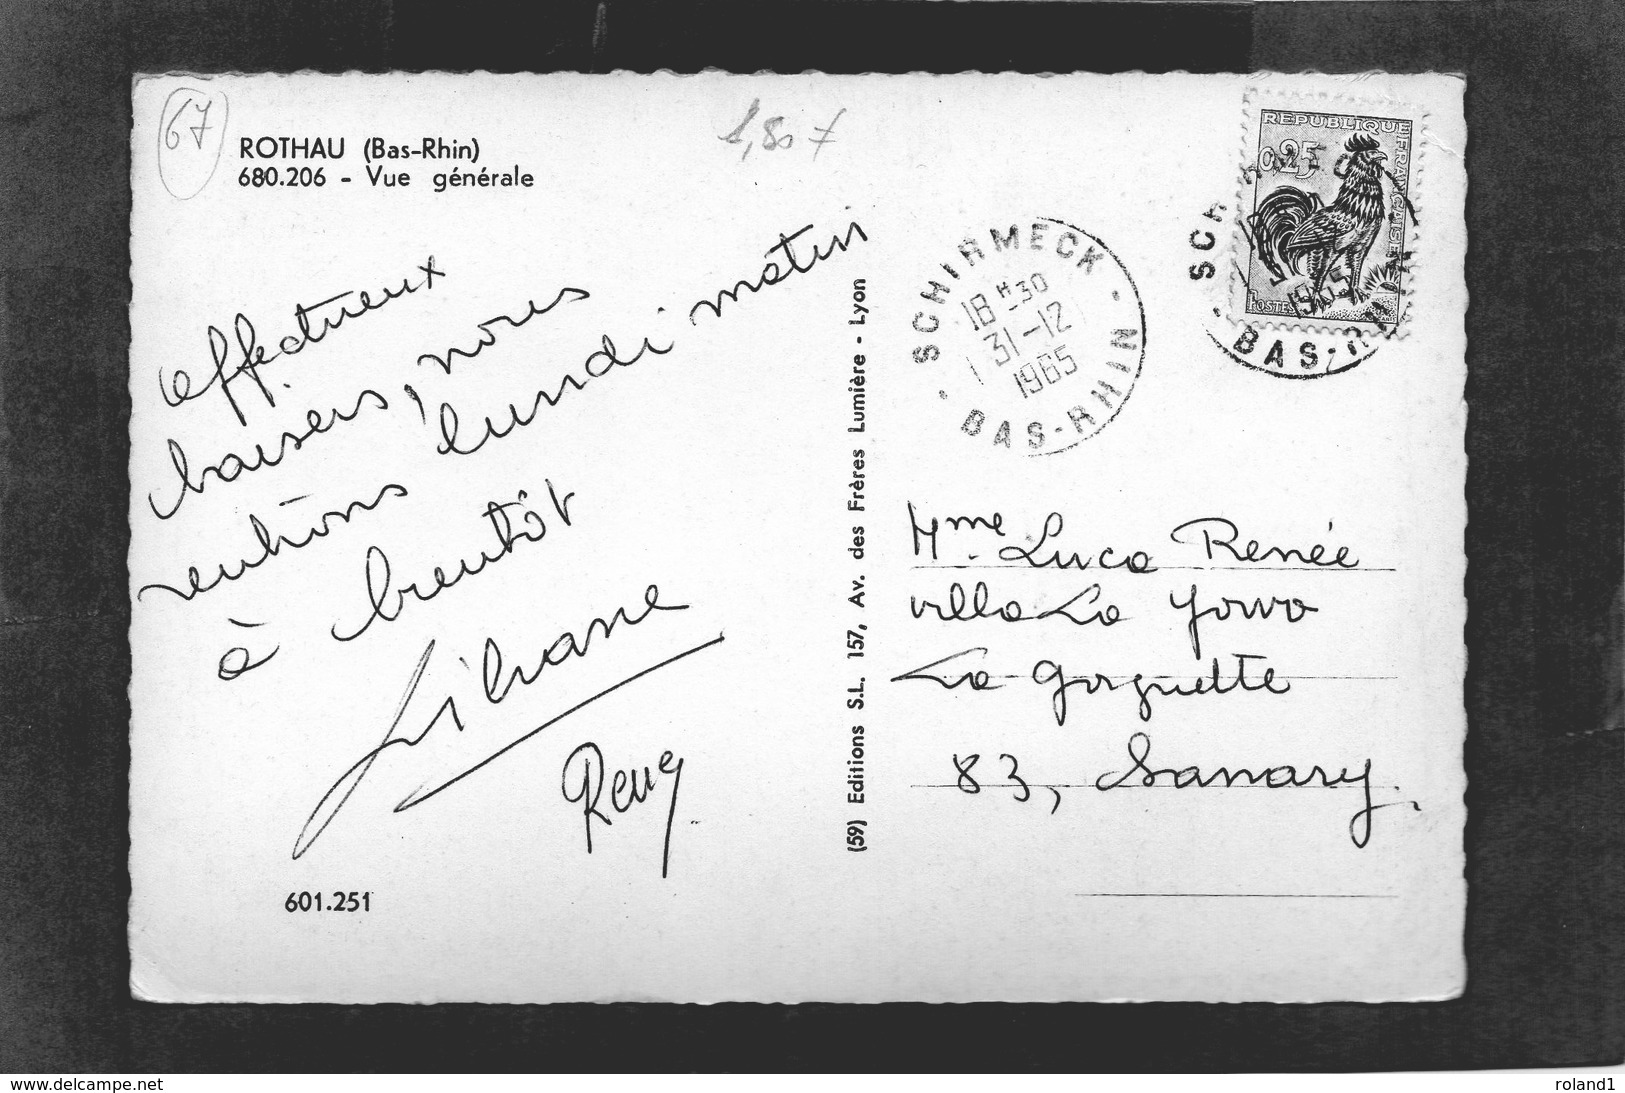 67
ROTHAU (Bas-Rhin)
680.206 - Vue générale
1,80 F
affectueux
baisers, nous
rentrons lundi matin
à bientôt
Liliane
Remy
601.251
(59) Editions S.L. 157, Av. des Frères Lumière - Lyon
SCHIRMECK
18 H 30
31-12
1965
BAS-RHIN
REPUBLIQUE FRANCAISE
0,25
POSTES
1965
BAS-RHIN
Mme Luca Renée
villa La
La Gorguette
83, Sanary.
delcampe.net
roland1